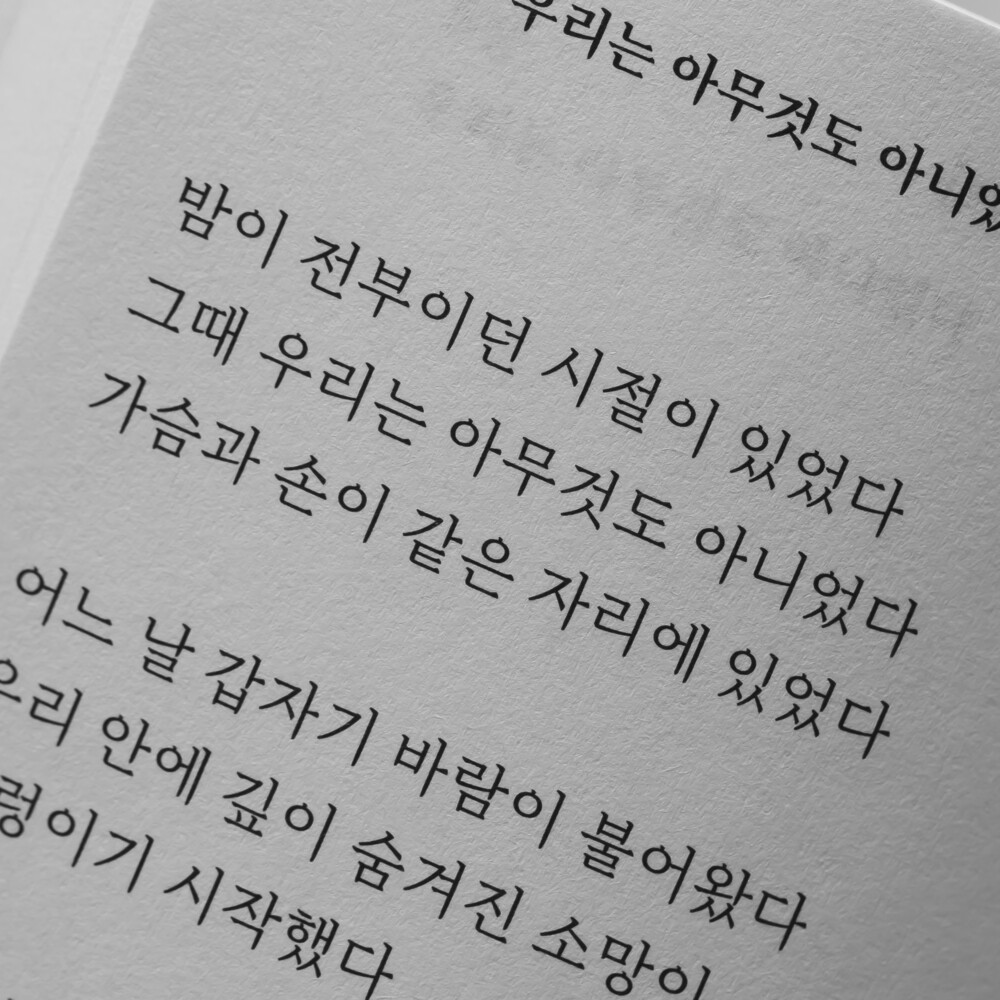 우리는 아무것도 아니었
밤이 전부이던 시절이 있었다
그때 우리는 아무것도 아니었다
가슴과 손이 같은 자리에 있었다
어느 날 갑자기 바람이 불어왔다
우리 안에 깊이 숨겨진 소망이
렁이기 시작했다